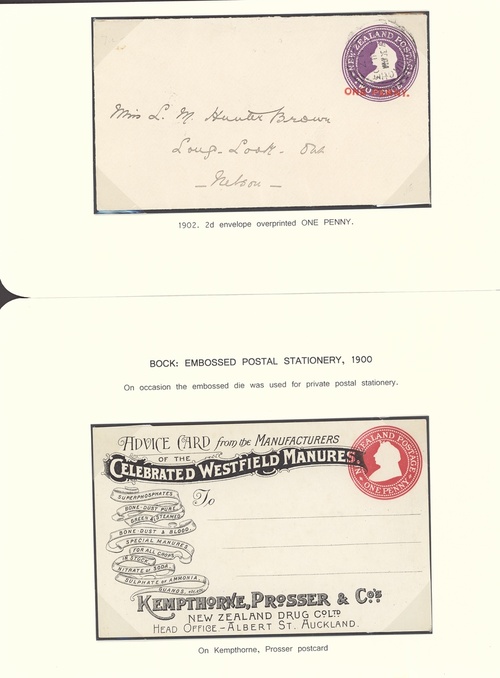 NEW ZEALAND POSTAGE
ONE PENNY.
Miss L. M. Hunter Brown
Long-Look-
Nelson
1902. 2d envelope overprinted ONE PENNY.
BOCK: EMBOSSED POSTAL STATIONERY, 1900
On occasion the embossed die was used for private postal stationery.
ADVICE CARD from the MANUFACTURERS
OF THE
CELEBRATED WESTFIELD MANURES.
NEW ZEALAND POSTAGE
ONE PENNY
To
SUPERPHOSPHATES.
BONE-DUST PURE,
GREEN & STEAMED.
BONE-DUST & BLOOD.
SPECIAL MANURES
FOR ALL CROPS
IN STOCK.
NITRATE of SODA.
SULPHATE of AMMONIA.
GUANOS,
KEMPTHORNE, PROSSER & Co's
NEW ZEALAND DRUG Co LTD
HEAD OFFICE - ALBERT ST. AUCKLAND.
On Kempthorne, Prosser postcard